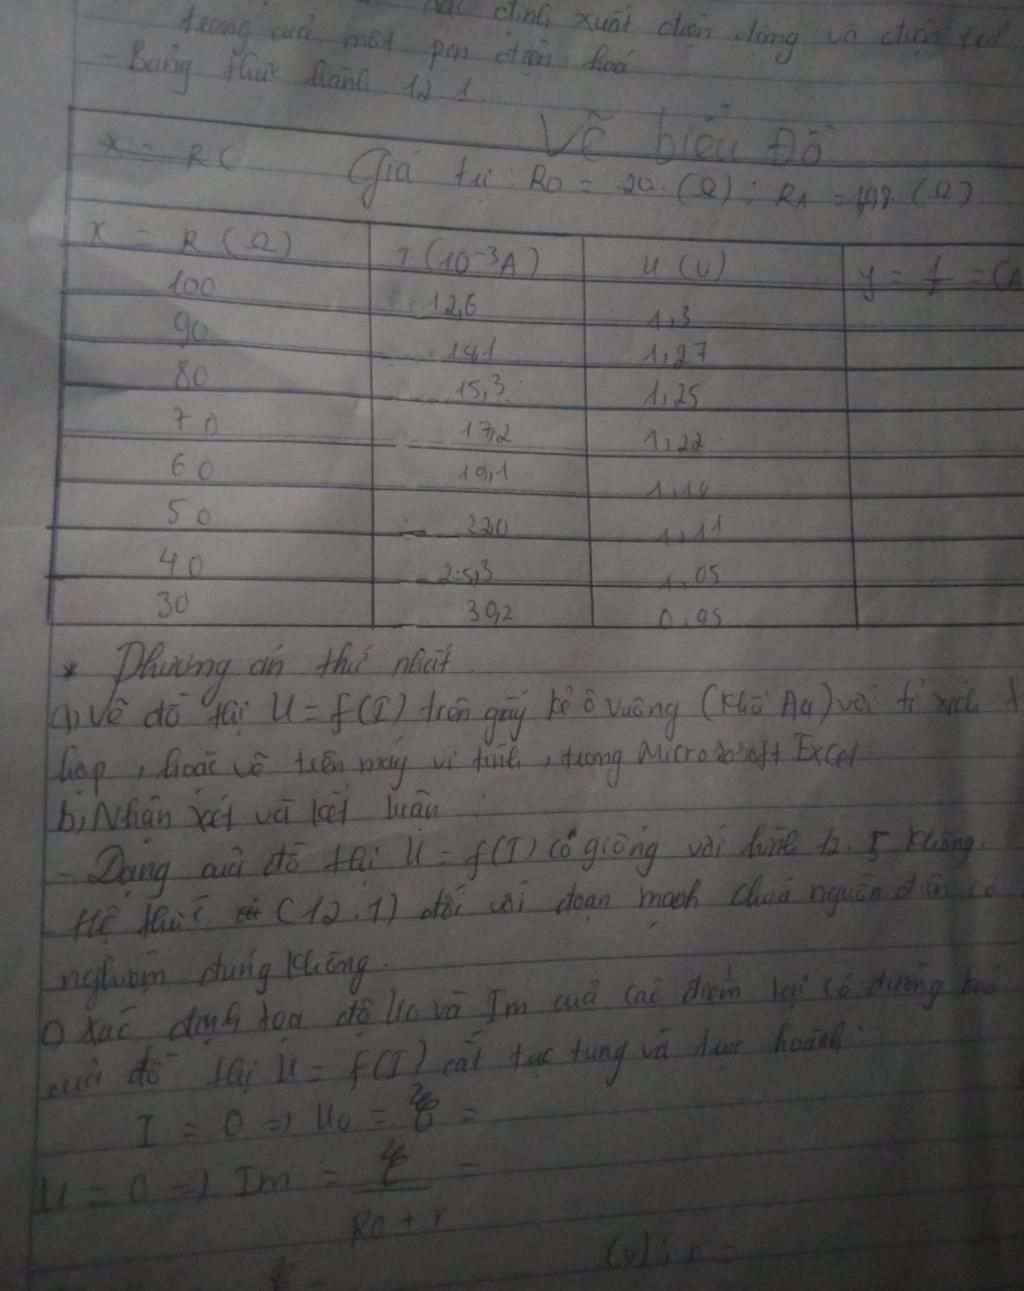 định xuất điện động và điện trở
trong của một pin điện hoá
- Bảng thực hành 12.1.
Vẽ biểu Đồ
x = R (
Giá trị : R0 = 20. (Ω) ; RA = (Ω)
x = R (Ω) I (10⁻³A) U (V) y = 1/I = (A
100 12,6 1,3
90 14,1 1,27
80 15,3 1,25
70 17,2 1,22
60 19,1 1,19
50 22,0 1,11
40 25,3 1,05
30 30,2 0,95
* Phương án thứ nhất.
a, Vẽ đồ thị U = f(I) trên giấy kẻ ô vuông (khổ A4) với tỉ xích t
hợp, hoặc vẽ trên máy vi tính, trong Microsoft Excel.
b, Nhận xét và kết luận :
- Dạng của đồ thị U = f(I) có giống với hình 12.5 không.
- Hệ thức (12.1) đối với đoạn mạch chứa nguồn điện có
nghiệm đúng không.
c) Xác định tọa độ U0 và Im của các điểm tại có đường kéo
của đồ thị U = f(I) cắt trục tung và trục hoành :
I = 0 => U0 = ℰ =
U = 0 => Im = ℰ =
R0 + r
(V) ; r =